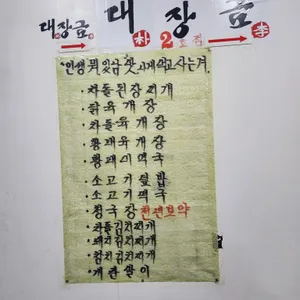 대장금 대장금
朴 2호점 李
"인생 뭐 있남 맛나게 먹고 사는겨
· 차돌된장찌개
· 닭육개장
· 차돌육개장
· 황태육개장
· 황태미역국
· 소고기덮밥
· 소고기미역국
· 청국장 천연보약
· 차돌김치찌개
· 돼지김치찌개
· 참치김치찌개
· 계란말이